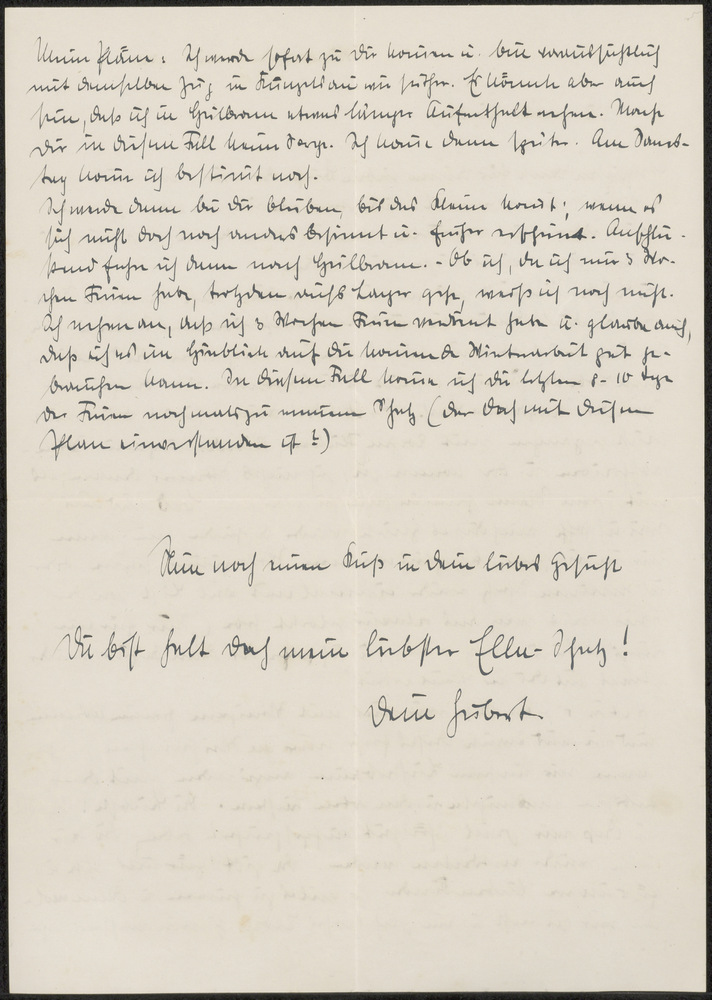 Meine Pläne: Ich werde sofort zu Dir kommen u. bin voraussichtlich
mit demselben Zug in Künzelsau wie früher. Es könnte aber auch
sein, daß ich in Heilbronn etwas länger Aufenthalt nehme. Mache
Dir in diesem Fall keine Sorge. Ich komme dann später. Am Sams-
tag komme ich bestimmt noch.
Ich werde dann bei Dir bleiben, bis das Kleine kommt; wenn es
sich nicht doch noch anders besinnt u. früher erscheint. Anschlie-
ßend fahre ich dann nach Heilbronn. - Ob ich, da ich nur 3 Wo-
chen Ferien habe, trotzdem aufs Lager gehe, weiß ich noch nicht.
Ich nehme an, daß ich 3 Wochen Ferien verdient habe u. glaube auch,
daß ich es im Hinblick auf die kommende Winterarbeit gut ge-
brauchen kann. In diesem Fall komme ich die letzten 8-10 Tage
der Ferien nochmals zu meinem Schatz. (der doch mit diesem
Plan einverstanden ist!?)
Nun noch einen Kuß in Dein liebes Gesicht
Du bist halt doch mein liebster Elle-Schatz!
Dein Hubert.